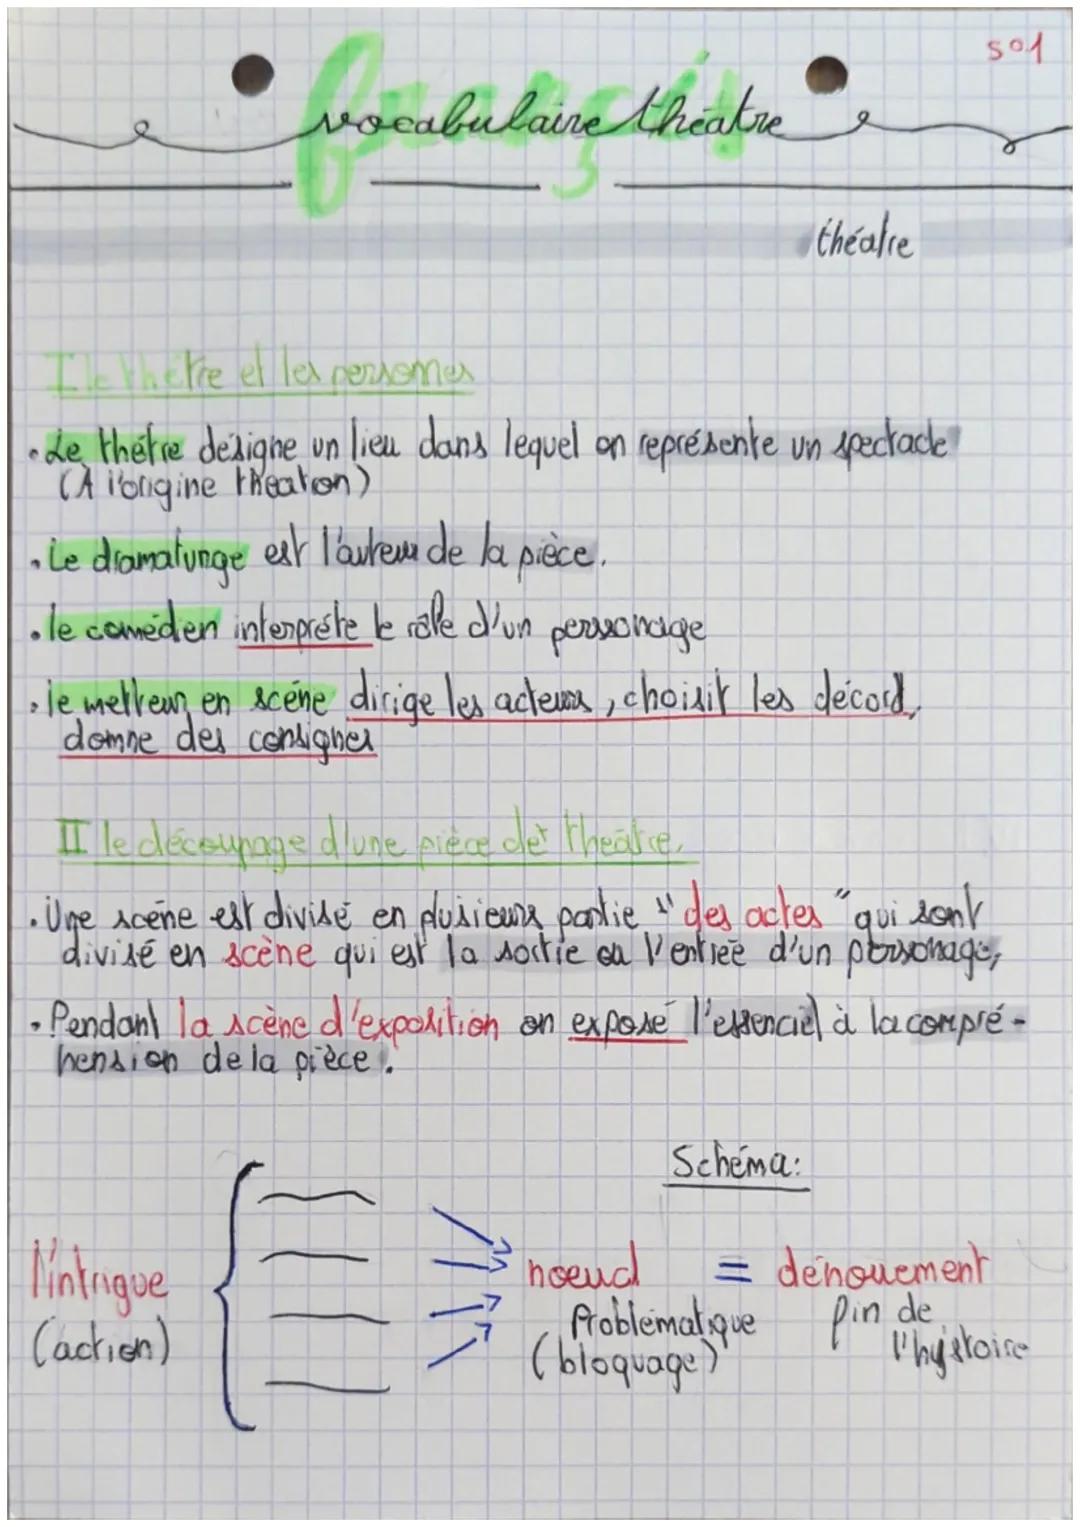 501
français
vocabulaire théatre
théatre
I le thétre et les personnes
• Le thétre désigne un lieu dans lequel on représente un spectacle
(A l'origine theatron)
• Le dramaturge est l'auteur de la pièce.
• le coméden interpréte le rôle d'un perssonage
• le metteur en scéne dirige les acteurs, choisit les décord,
domne des consignes
II le découpage d'une pièce det theâtre.
• Une scéne est divisé en plusieurs partie " des actes " qui sont
divisé en scène qui est la sortie ou l'entrée d'un personage,
• Pendant la scène d'exposition on exposé l'essenciel à la compré-
hension de la pièce.
Schéma:
l'intrigue
(action)
noeud = dénouement
Problématique
(bloquage)
fin de
l'hystoire